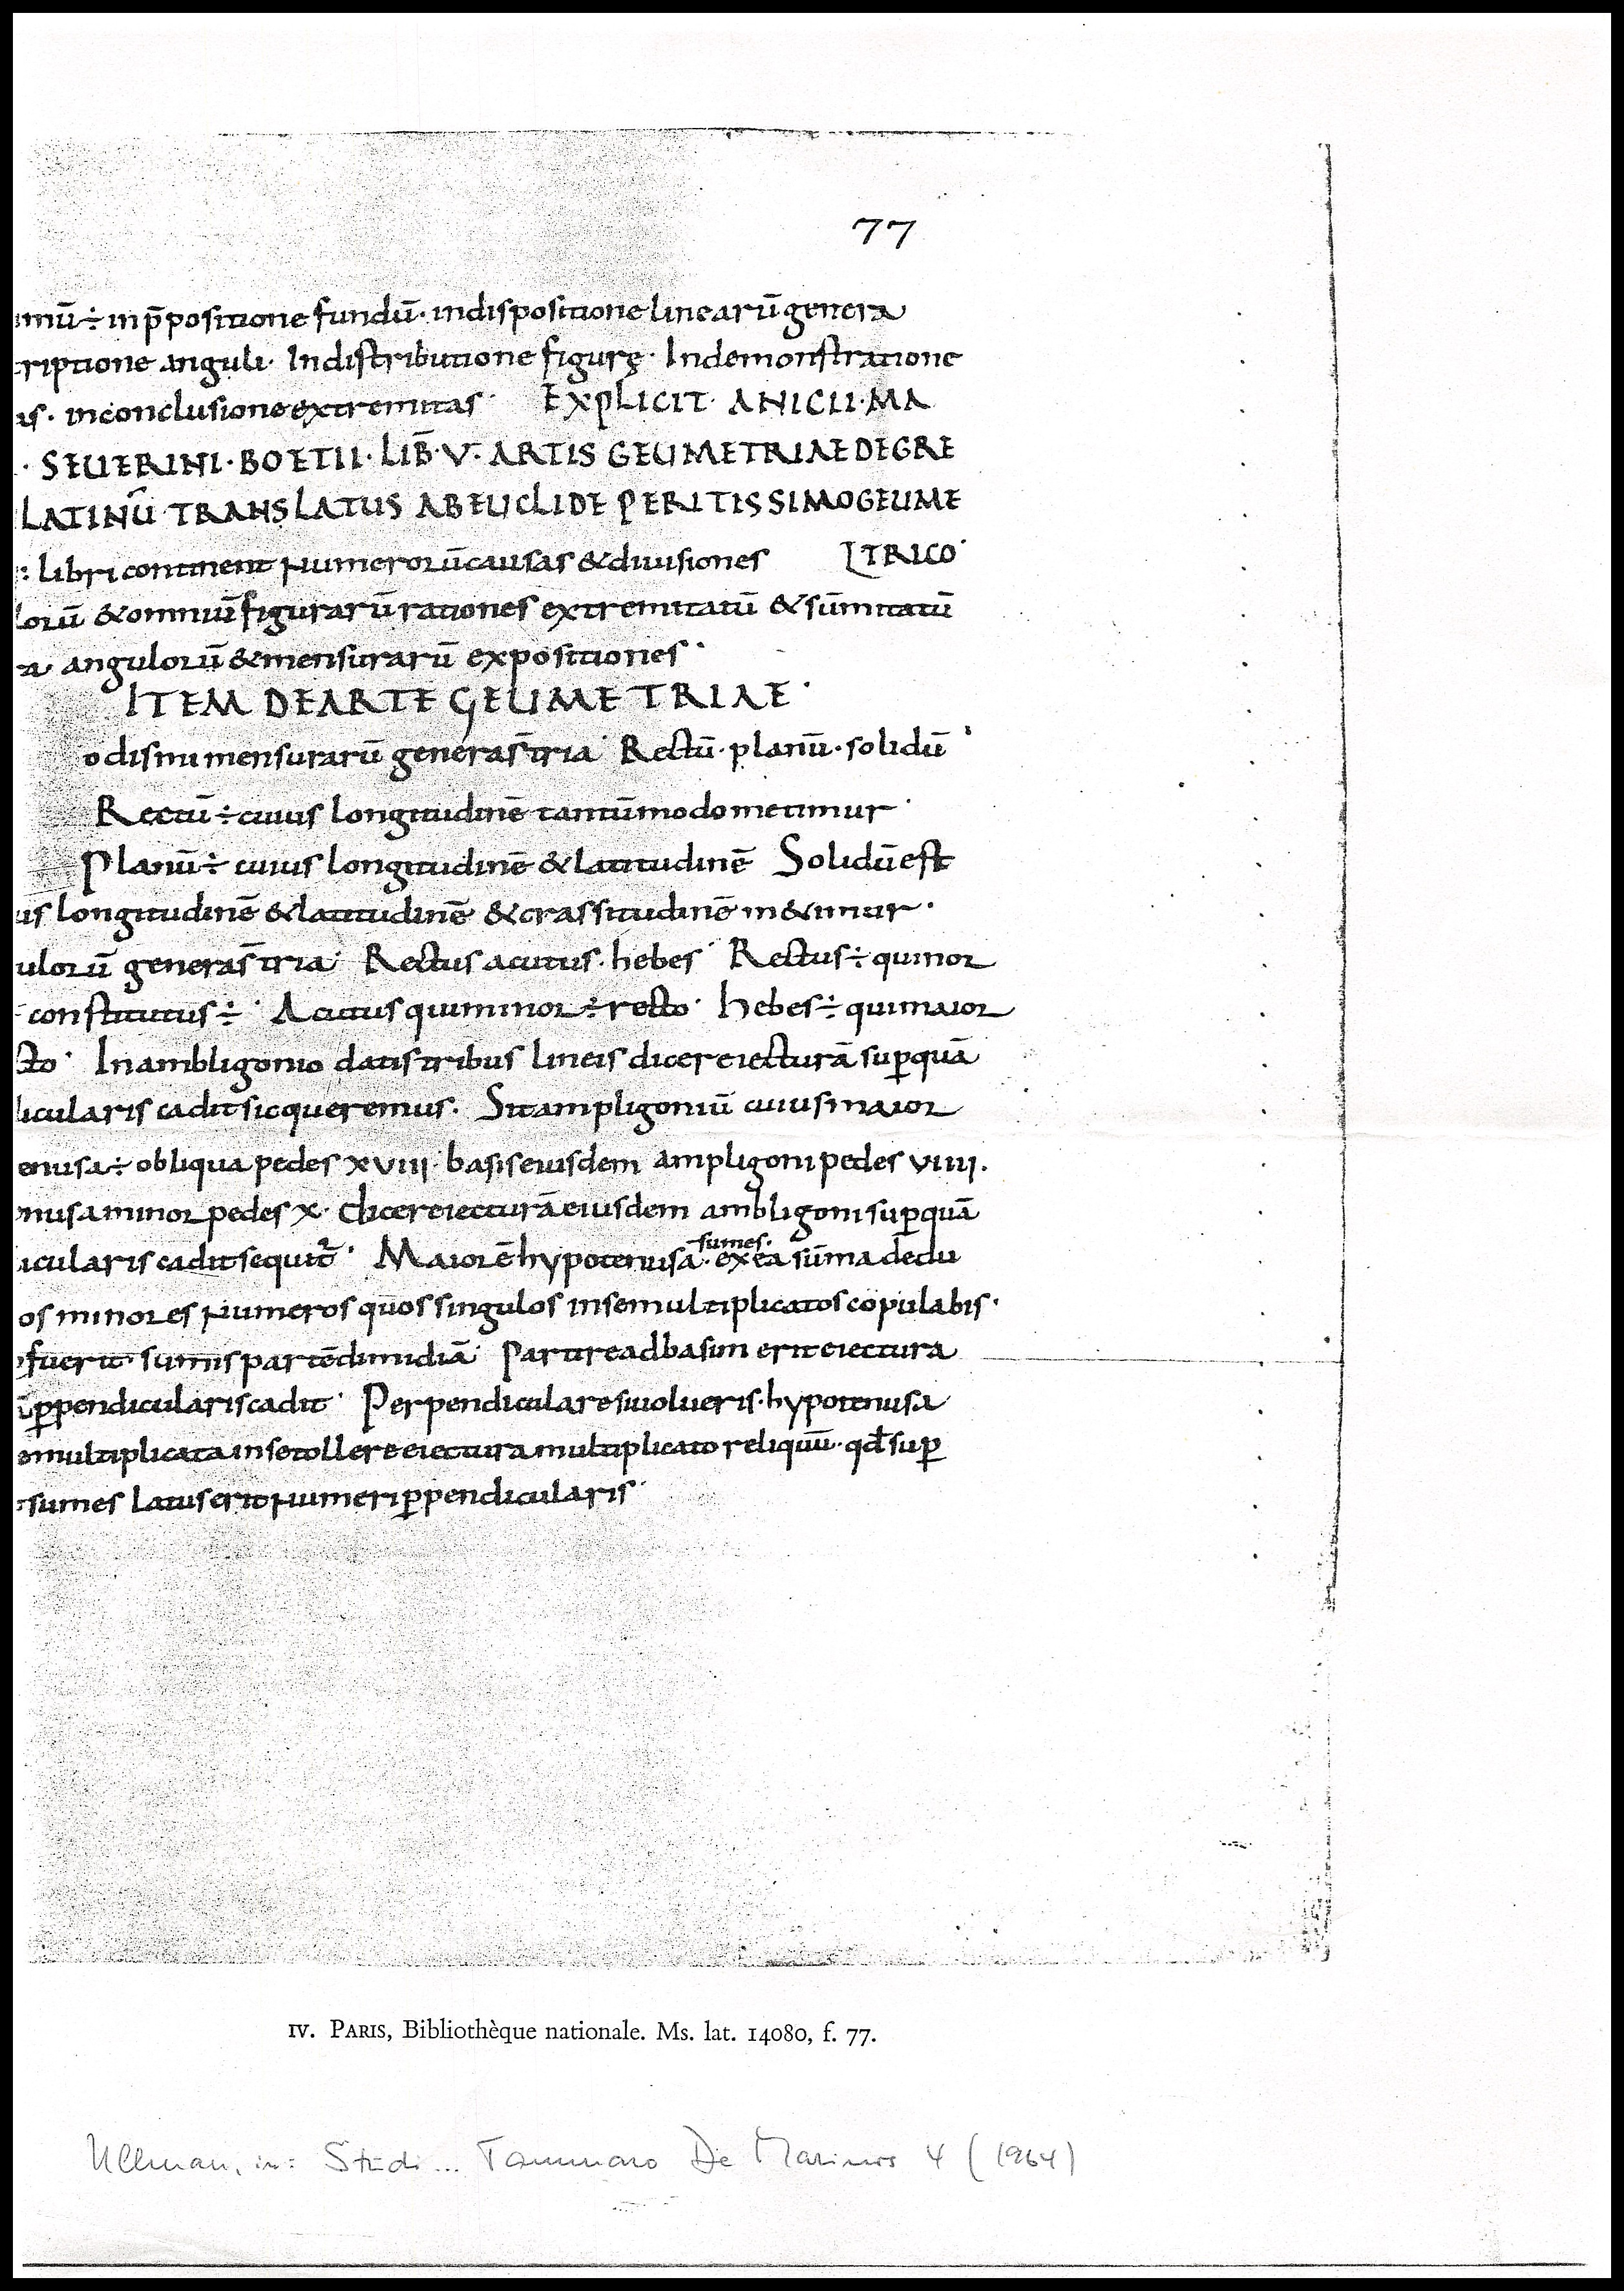 77
imū ÷ inp̄positione fundū· indispositione linearū genera
criptione anguli· Indistributione figurę· Indemonstratione
is· inconclusione extremitas· EXPLICIT· ANICII·MA
· SEUERINI·BOETII·LIB̄·V· ARTIS GEUMETRIAE DEGRE
LATINŪ TRANSLATUS ABEUCLIDE PERITISSIMOGEUME
: libri continent numerorū causas & diuisiones [TRICO·
lorū & omniū figurarū rationes extremitatū & sūmitatū
a angulorū & mensurarū expositiones·
ITEM DEARTE GEUMETRIAE·
odismi mensurarū genera s̄ tria· Rectū· planū· solidū·
Rectū ÷ cuius longitudinē tantūmodo metimur·
Planū ÷ cuius longitudinē & latitudinē Solidū est
us longitudinē & latitudinē & crassitudinē m&imur·
ulorū genera s̄ tria· Rectus acutus· hebes· Rectus ÷ quinor
constitutus ÷· Acutus qui minor ÷ recto· hebes ÷ qui maior
cto· Inambligonio datis tribus lineis dicere iecturā sup̄ quā
licularis cadit sic queremus· Sit ampligoniū cuius maior
enusa ÷ obliqua pedes xviii· basis eiusdem ampligoni pedes viiii.
nusa minor pedes x· dicere iecturā eiusdem ambligoni sup̄ quā
icularis cadit sequit᷑· Maiorē hypotenusa· sumes· ex ea sūma dedu
os minores numeros quos singulos inse multiplicatos copulabis·
fuerit· sumis partē dimidiā· Partire ad basim erit eiectura
p̄pendicularis cadit· Perpendiculare si uolueris· hypotenusa
e multiplicata inse tollere eiectura multiplicato reliquū· qđ sup̄
sumes latus erit numeri p̄pendicularis·
IV. PARIS, Bibliothèque nationale. Ms. lat. 14080, f. 77.
Ullman, in: Studi... Tammaro De Marinis 4 (1964)